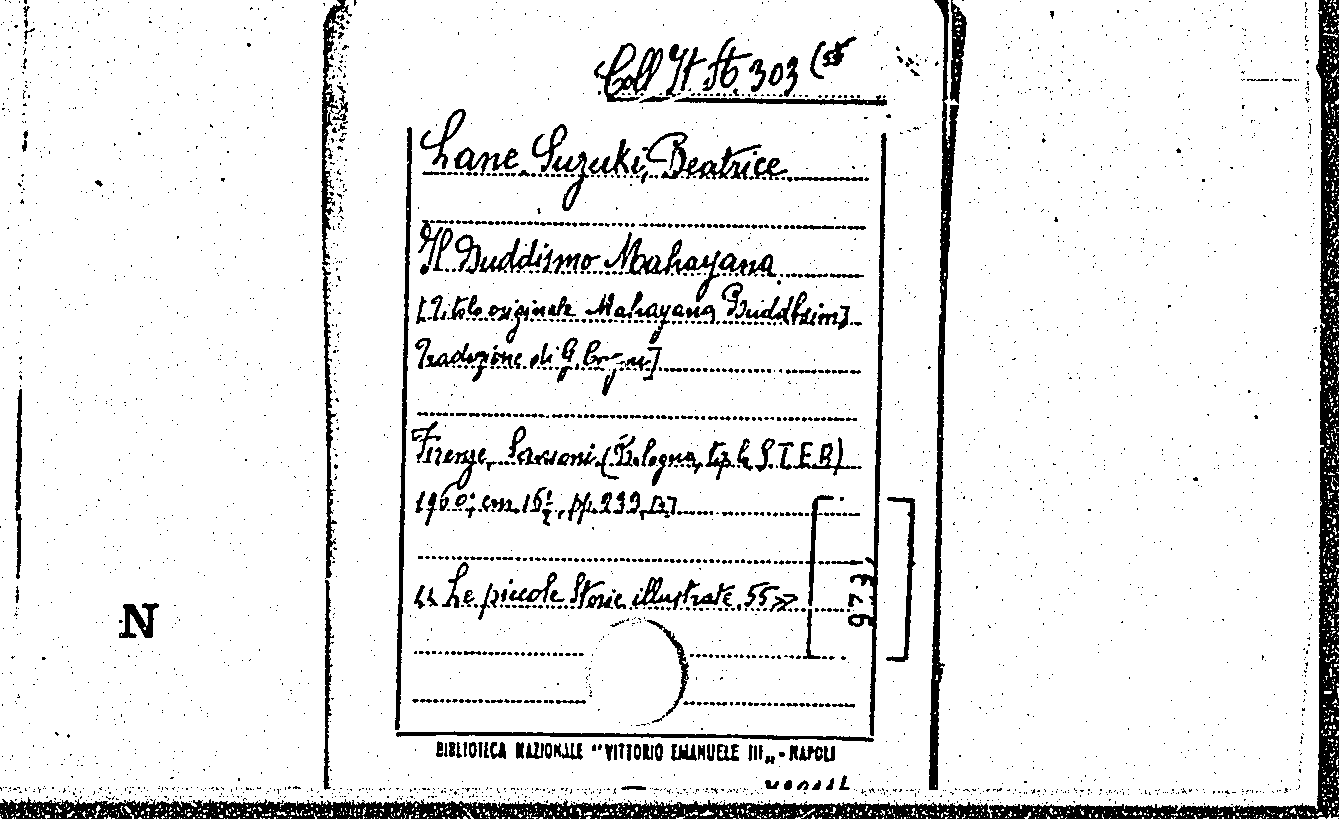 Coll It St. 303 (55
Lane Suzuki, Beatrice
Il Buddismo Mahayana
[Titolo originale Mahayana Buddhism]
Traduzione di G.
Firenze, Sansoni (Bologna, tip. la S.T.E.B)
1960; cm. 16½, pp. 233,
« Le piccole Storie illustrate. 55»
973
N
BIBLIOTECA NAZIONALE "VITTORIO EMANUELE III„ - NAPOLI